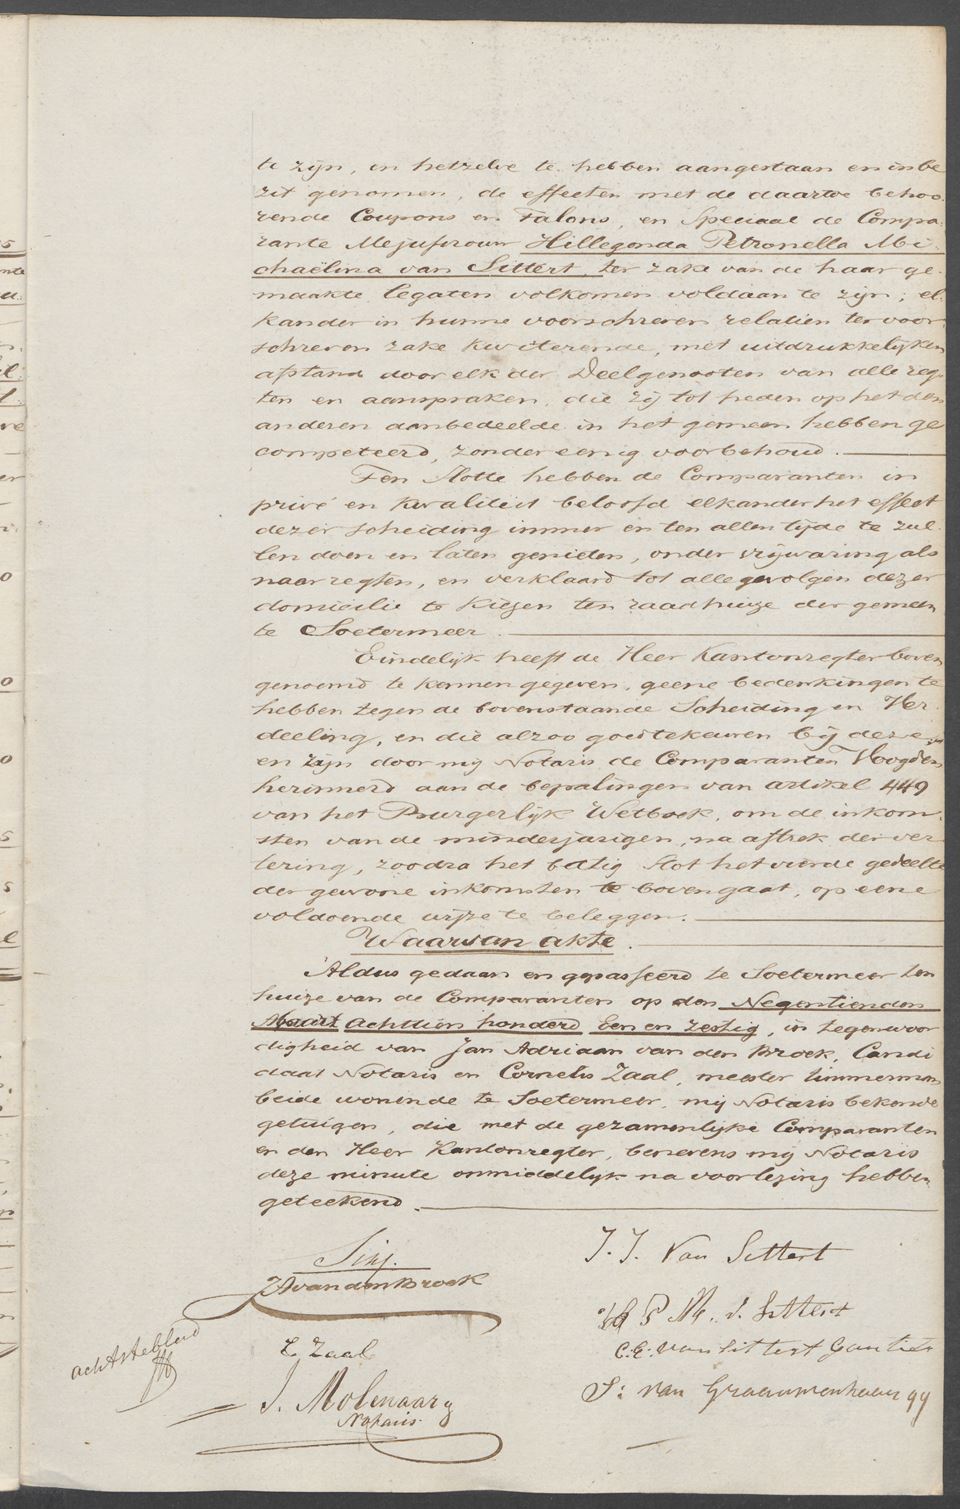 te zijn, en hetzelve te hebben aangestaan en in be
zit genomen, de effecten met de daartoe behoo
rende Coupons en Talons, en Speciaal de Compa
rante Mejufvrouw Hillegonda Petronella Mi
chaëlina van Sittert, ter zake van de haar ge
maakte legaten volkomen voldaan te zijn; el
kander in hunne voorschreven relatien ter voor
schreven zake kwiterende, met uitdrukkelijken
afstand door elk der Deelgenooten van alle reg
ten en aanspraken, die zij tot heden op het den
anderen aanbedeelde in het gemeen hebben ge
competeerd, zonder eenig voorbehoud.
Ten Slotte hebben de Comparanten in
privé en kwaliteit beloofd elkander het effect
dezer scheiding immer en ten allen tijde te zul
len doen en laten genieten, onder vrijwaring als
naar regten, en verklaard tot alle gevolgen dezer
domicilie te kiezen ten raadhuize der gemeen
te Soetermeer.
Eindelijk heeft de Heer Kantonregter boven
genoemd te kennen gegeven, geene bedenkingen te
hebben tegen de bovenstaande Scheiding en Ver
deeling, en die alzoo goedtekeuren bij deze,
en zijn door mij Notaris de Comparanten Voogden
herinnerd aan de bepalingen van artikel 449
van het Burgerlijk Wetboek, om de inkom
sten van de minderjarigen, na aftrek der ver
tering, zoodra het batig slot het vierde gedeelte
der gewone inkomsten te boven gaat, op eene
voldoende wijze te beleggen.
Waarvan akte.
Aldus gedaan en gepasseerd te Soetermeer ten
huize van de Comparanten op den Negentienden
Maart achttien honderd een en zestig, in tegenwoor
digheid van Jan Adriaan van den Broek, Candi
daat Notaris en Cornelis Zaal, meester timmerman
beide wonende te Soetermeer, mij Notaris bekende
getuigen, die met de gezamenlijke Comparanten
en den Heer Kantonregter, benevens mij Notaris
deze minute onmiddelijk na voorlezing hebben
geteekend.
J. J. Van Sittert
JA van den Broek
H P M. v. Sittert
C. Zaal
C. E. van Sittert
achtste blad
J. Molenaar
Notaris